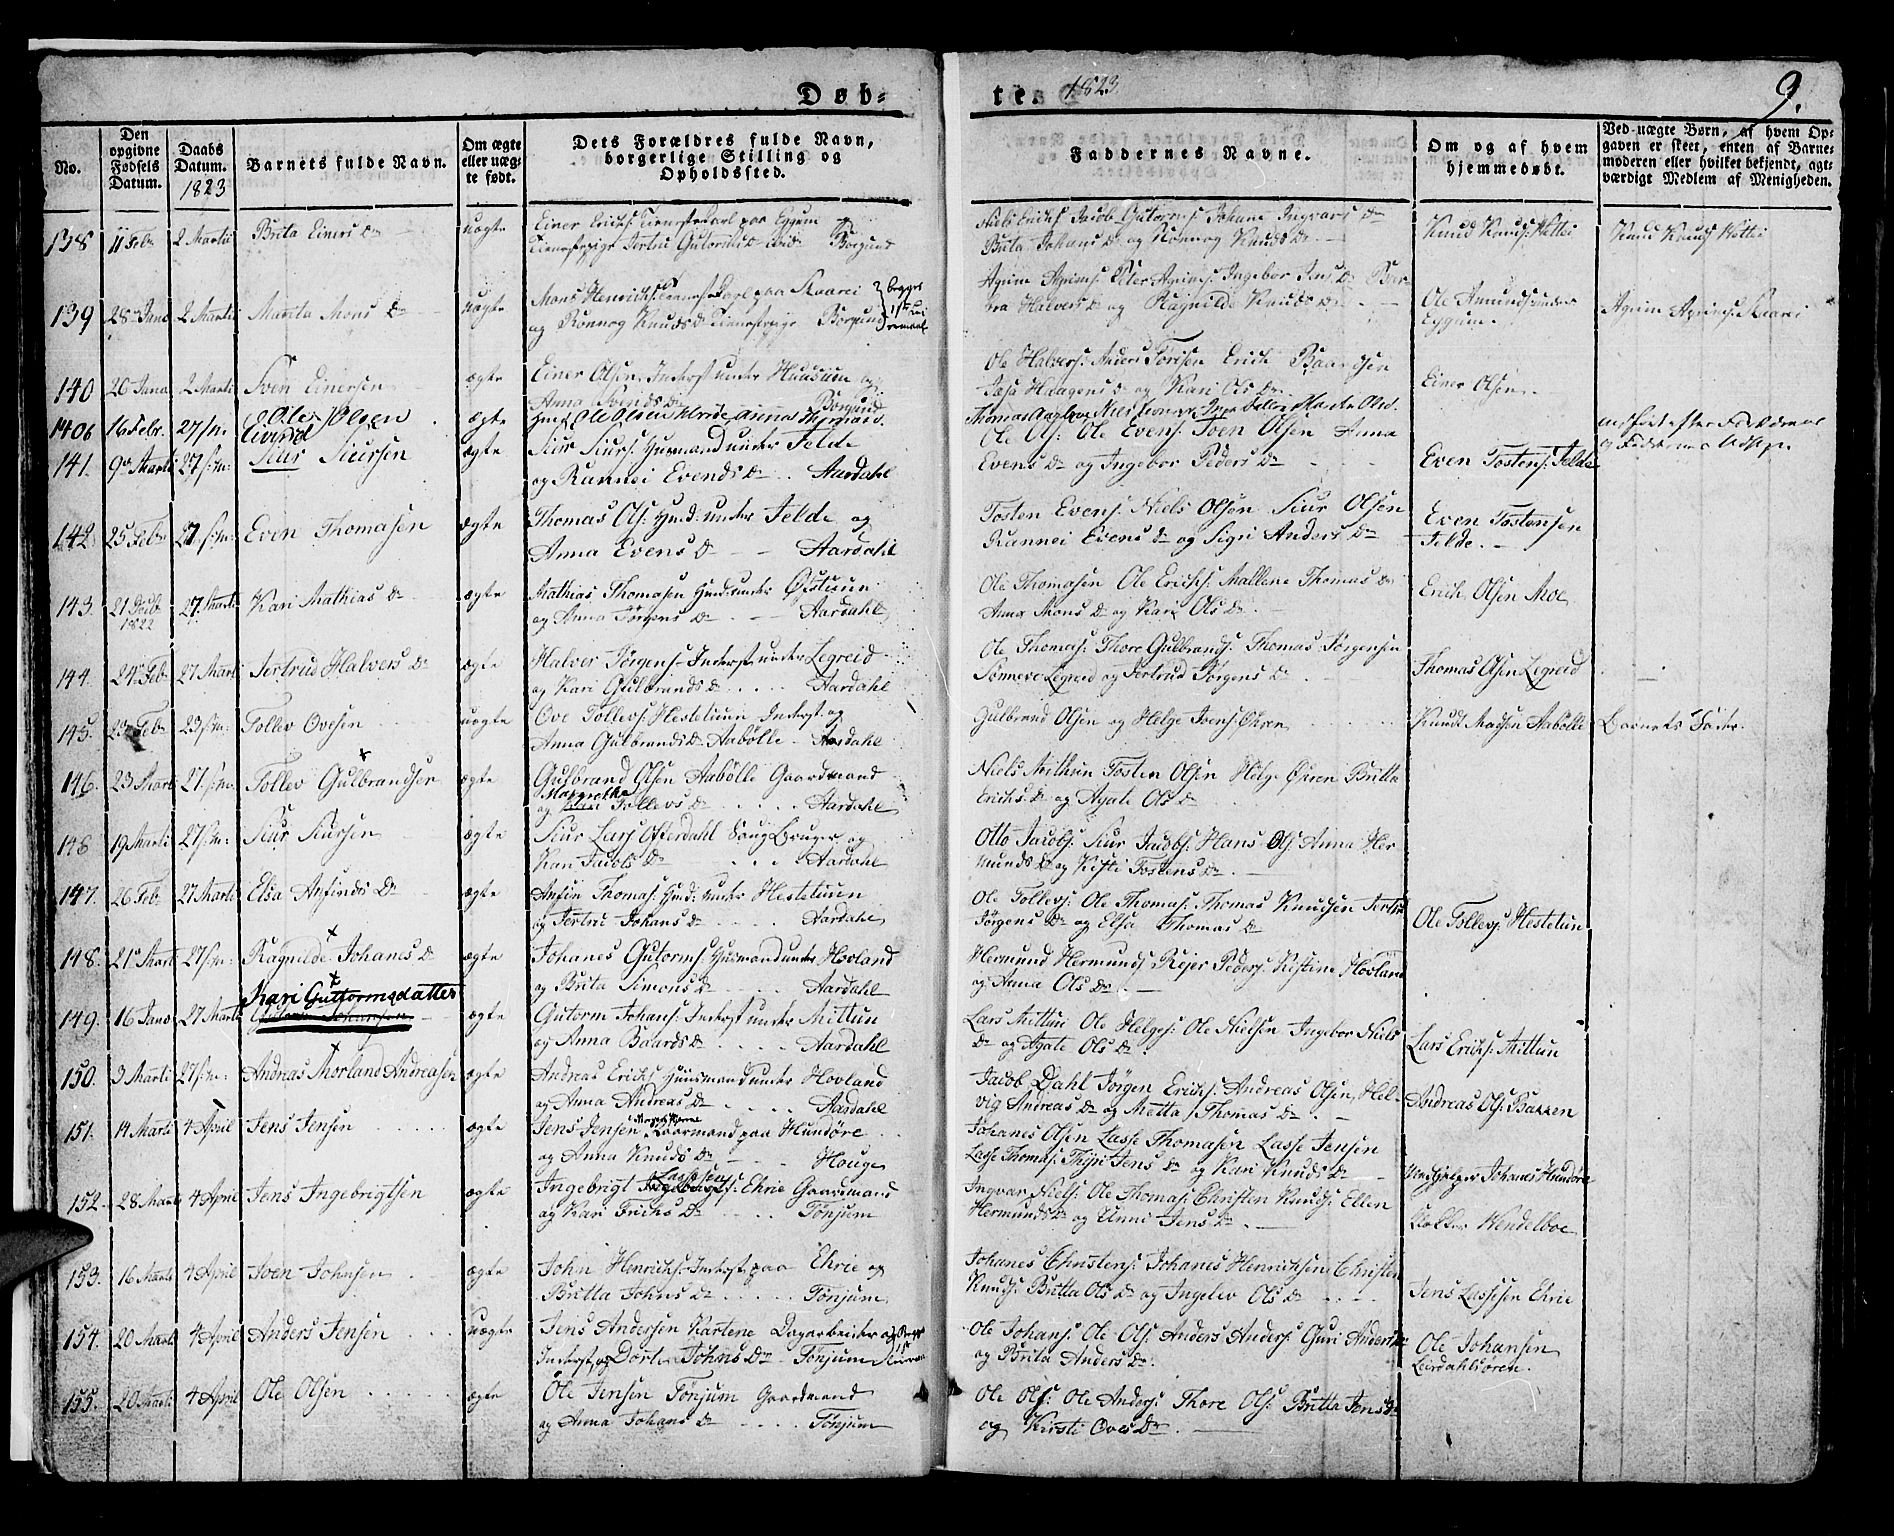 Døb=
te.
1823.
9.
No.
Den opgivne Fødsels Datum.
Daabs Datum. 1823
Barnets fulde Navn.
Om ægte eller uæg- te født.
Dets Forældres fulde Navn, borgerlige Stilling og Opholdssted.
Faddernes Navne.
Om og af hvem hjemmedøbt.
Ved uægte Børn, af hvem Op- gaven er skeet, enten af Barne- moderen eller hvilket bekjendt, agt- værdigt Medlem af Menigheden.
138 11 Feb 2 Martii Brita Einers D. uægte Einer Erichs: Tieneste Karl paa Eggum og
Tienestepige Jertru Gutorms D. ibid Borgund
Niels Erichs: Jacob Gutorms: Johane Ingvars D.
Brita Johans D. og Rønnog Knuds D.
Knud Knuds: Knud Knuds:
139 28 Janv 2 Marti Marita Mons D. uægte Mons Henrichs: Tieneste Karl paa Skaarei
og Rønnog Knuds D. Tienestepige Borgund
Agrim Agrims: Peter Agrims: Ingebor Jens D. Bar-
bra Halvers D. og Ragnilde Knuds D.
Ole Amundsen under Eggum.
Agrim Agrims: Skaarei
140 26 Janv 2 Marti Sven Einersen ægte Einer Olsen Inderst under Huusum og
Anna Svends D. Borgund
Ole Halvers: Anders Torisen Erich Baardsen
Haagens D. og Kari Ols D.
Einer Olsen.
140b 16 Febr. 27 s:m: Ole Olsen ægte
141. 9de Marti 27 s:m: Eivind Siur Siursen ægte Siur Siurs: Huusmand under Felde
og Rannei Evends D. Aardahl
Ole Ols: Ole Evens: Iven Olsen Anna
Evens D. og Ingebor Peders D.
Even Tostens: Felde
142. 25 Feb 27 s:m: Even Thomasen ægte Thomas Ols: Husd: under Felde og
Anna Evens D. Aardahl
Tosten Evens: Niels Olsen Siur Olsen
Rannei Evens D. og Sigri Anders D.
Even Tostensen Felde.
143. 21 Decb 1822 27. Marti Kari Mathias D. ægte Mathias Thomasen Husd: under Øistuun
og Anna Jørgens D. Aardahl
Ole Thomasen Ole Erichs: Mallene Thomas D.
Anna Mons D. og Kari Ols D.
Erich Olsen Moe
144. 24 Feb 27 Marti Jertrud Halvers D. ægte Halver Jørgens: Inderst under Legreid
og Kari Gulbrands D. Aardahl
Ole Thomas: Thore Gulbrands: Thomas Jørgensen
Sønneve Legreid og Jertrud Jørgens D.
Thomas Olsen Legreid
145. 23 Feb 23 s:m: Tollev Ovesen uægte Ove Tollevs: Hestetuun Inderst og
Anna Gulbrands D. Aabølle Aardahl
Gulbrand Olsen og Helge Ivens: Øhren
Knudt Madsen Aabølle Barnets Fader.
146. 23 Marti 27. s:m: Tollev Gulbrandsen ægte Gulbrand Olsen Aabølle Gaardmand
og Margrethe Tollevs D. Aardahl
Niels Mithun Tosten Olsen Helge Øhren Britta
Erichs D. og Agate Ols D.
148 19 Marti 27 s:m: Siur Siursen ægte Siur Lars: Ofterdahl Saug Bruger og
Kari Jacobs D. Aardahl
Otto Jacobs: Siur Jacobs: Hans Ols: Anna Her-
munds D. og Kisti Tostens D.
147. 26 Feb 27 Marti Elsa Anfinds D. ægte Anfin Thomas: Husd: under Hestetuun
og Jertru Johans D. Aardahl
Ole Tollevs: Ole Thomas: Thomas Knudsen Jertru
Jørgens D. og Elsa Thomas D.
Ole Tollevs: Hestetun
148. 21 Marti 27 s:m: Ragnilde Johanes D. ægte Johanes Gutorms: Huusmand under Hovland
og Brita Simons D. Aardahl
Hermund Hermunds: Rejer Peders: Kistine Hovland
og Anna Ols D.
149. 16 Janv 27 Marti Kari Guttormsdatter ægte Gutorm Johans: Inderst under Mittun
og Anna Baards D. Aardahl
Lars Mittun Ole Helges: Ole Nielsen Ingebor Niels
D. og Agate Ols D.
Lars Erichs: Mittun
150. 3 Marti 27 s:m: Andreas Morland Andreasen ægte Andreas Erichs: Huusmand under Hovland
og Anna Andreas D. Aardahl
Jacob Dahl Jørgen Erichs: Andreas Olsen Hel-
vig Andreas D. og Metta Thomas D.
Andreas Ols: Bakken
151. 14 Marti 4 April Jens Jensen ægte Jens Jensen Gaarmand paa Hundøre
og Anna Knuds D. Houge
Johanes Olsen Lasse Thomasen Lasse Jensen
Lasse Thomas: Jens D. og Kari Knuds D.
Johans Hundøre
152. 28 Marti 4 April Jens Ingebrigtsen ægte Ingebrigt Lassesen Ehrie Gaardmand
og Kari Erichs D. Tønjum
Ingvar Niels: Ole Thomas: Christen Knuds: Ellen
Hermunds D. og Unni Jens D.
Klokker Wendelboe
153. 16 Marti 4 April Iven Johnsen ægte John Henrichs: Inderst paa Ehrie og
Britta Johns D. Tønjum
Johanes Christens: Johanes Henrichsen Christen
Knuds: Britta Ols D. og Ingelev Ols D.
Jens Lassesen Ehrie
154. 20 Marti 4 April Anders Jensen uægte Jens Andersen Dagarbeider og
Inderst og Dorte Johns D. Tønjum
Ole Johans: Ole Ols: Anders Anders: Guri Anders D.
og Brita Anders D.
Ole Johansen Leirdahlsøren.
155. 20 Marti 4 April Ole Olsen ægte Ole Jensen Tønjum Gaardmand
og Anna Johans D. Tønjum
Ole Ols: Ole Anders: Thore Ols: Britta Jens D.
og Kirsti Oves D.